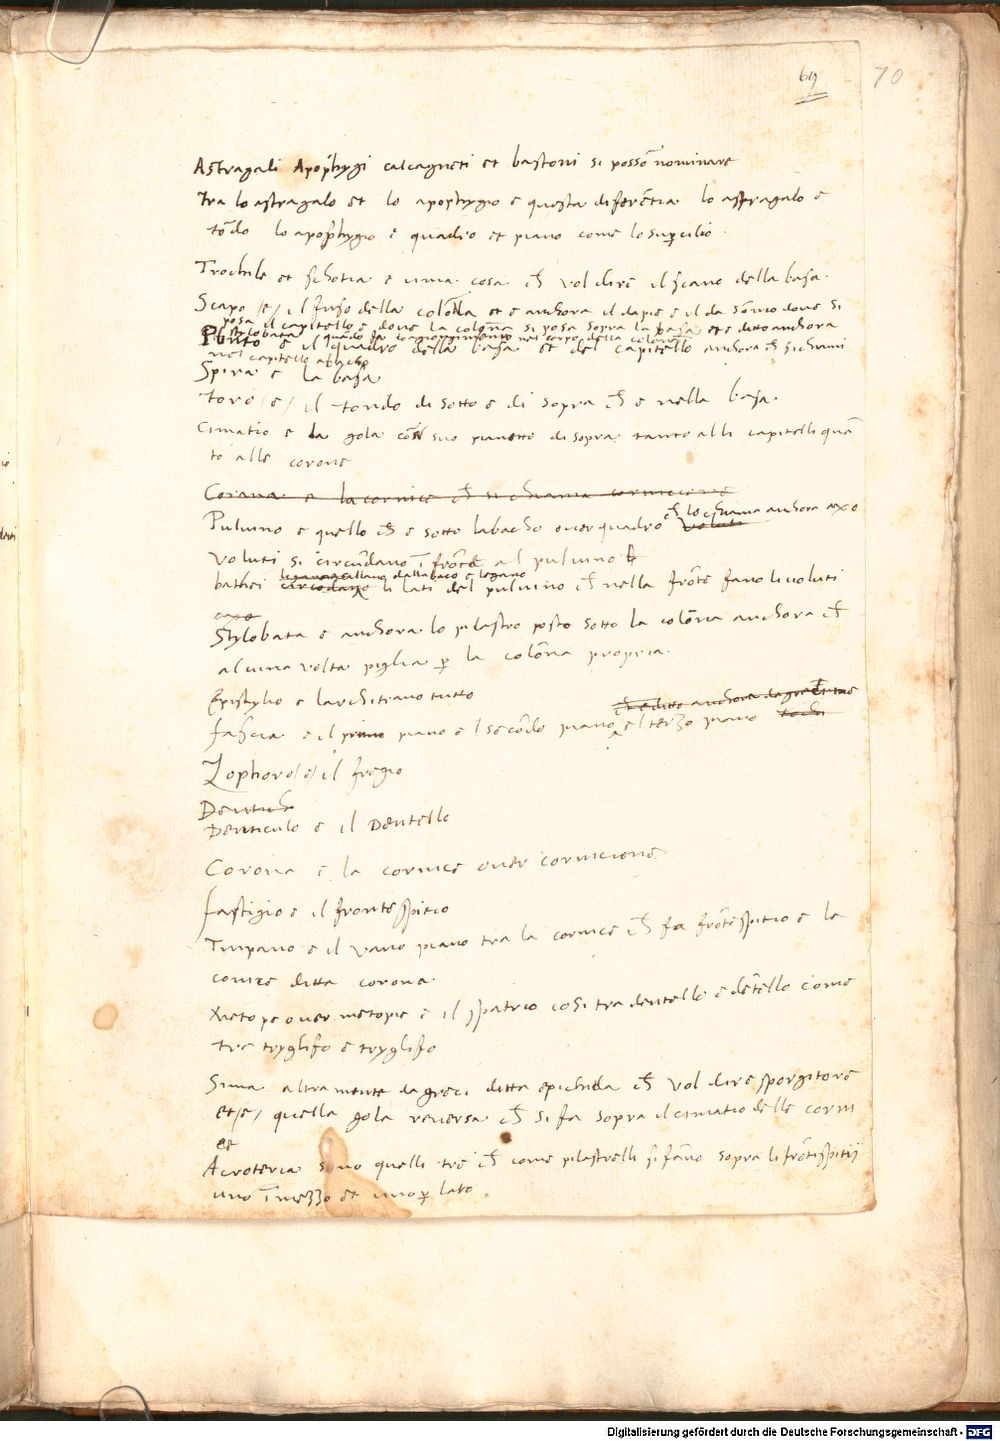 69 70
Astragali Apophygi calcagneti et bastoni si possō nominare
tra lo astragalo et lo apophygio e questa diferētia lo astragalo e
tōdo lo apophygio e quadro et piano come lo supercilio
Trochile et schotia e una cosa ch vol dire il scavo della basa.
Scapo /e/ il fuso della colōna et e anchora il da pie e il da sōmo dove si
posa il capitello e dove la colōna si posa sopra la basa et e ditto anchora
Plinto e il quadro della basa et del capitello anchora ch si chiami
nel capitello abacho
Spira e la basa
toro /e/ il tondo di sotto e di sopra ch e nella basa.
Cimatio e la gola con suo pianetto di sopra tanto alli capitelli quā
to alle corone
Corona e la cornice ch si chiama cornicione
Pulvino e quello ch e sotto labacho over quadro ch lo chiama anchora
voluti si circūdano ī frōte al pulvino
balthei li lati del pulvino ch nella frōte fano li voluti
Stylobata e anchora lo pilastro posto sotto la colōna anchora ch
alcuna volta piglia p la colōna propria.
Epistylio e larchitravo tutto
fascia e il primo piano e l secōdo piano e l terzo piano
ch e ditto anchora da greci
Zophoro /e/ il fregio
Denticulo e il Dentello
Corona e la cornice over cornicione
fastigio e il frontespitio
Timpano e il vano piano tra la cornice ch fa frōtespitio e la
cornice ditta corona.
Metope over metopie e il spatio cosi tra dentello e dētello come
tra tryglifo e tryglifo
Sima altramente da greci ditta epicheda ch vol dire sporgitore
et /e/ quella gola reversa ch si fa sopra il cimatio delle corni
ce
Acroteria sono quelli tre ch come pilastrelli si fano sopra li frōtispitij
uno ī mezzo et uno p lato.
Digitalisierung gefördert durch die Deutsche Forschungsgemeinschaft - DFG